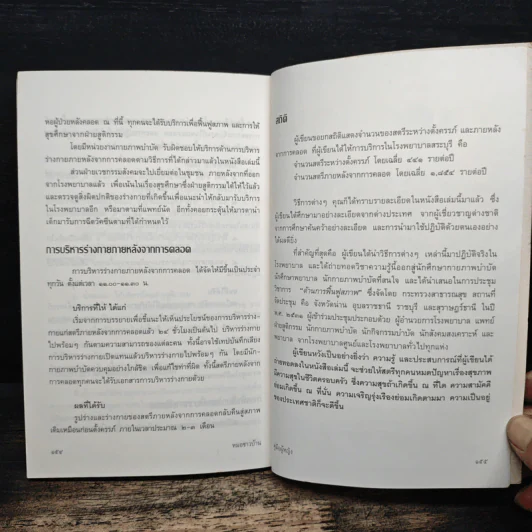 หอผู้ป่วยหลังคลอด ณ ที่นี้ ทุกคนจะได้รับบริการเพื่อฟื้นฟูสภาพ และการให้
สุขศึกษาจากฝ่ายสูติกรรม
โดยมีหน่วยงานกายภาพบำบัด รับผิดชอบให้บริการด้านการบริหาร
ร่างกายภายหลังจากการคลอดตามวิธีการที่ได้กล่าวมาแล้วในหนังสือเล่มนี้
ส่วนฝ่ายเวชกรรมสังคมจะไปเยี่ยมต่อในชุมชน ภายหลังจากที่ออก
จากโรงพยาบาลแล้ว เพื่อเน้นในเรื่องสุขศึกษาซึ่งฝ่ายสูติกรรมได้ให้ไว้แล้ว
และตรวจดูสิ่งผิดปกติของร่างกายที่เกิดขึ้นเพื่อแนะนำให้กลับมารับบริการ
ในโรงพยาบาลอีก หรือมาตามที่แพทย์นัด อีกทั้งคอยกระตุ้นให้มารดานำ
เด็กมารับการฉีดวัคซีนตามที่ได้กำหนดไว้
การบริหารร่างกายภายหลังจากการคลอด
การบริหารร่างกายภายหลังจากการคลอด ได้จัดให้มีขึ้นเป็นประจำ
ทุกวัน ตั้งแต่เวลา ๑๑.๐๐-๑๑.๓๐ น.
บริการที่ให้ ได้แก่
เริ่มจากการบรรยายเพื่อชี้แนะให้เห็นประโยชน์ของการบริหารร่าง-
กายแก่สตรีภายหลังจากการคลอดแล้ว ๒๔ ชั่วโมงเป็นต้นไป บริหารร่างกาย
ไปพร้อมๆ กันตามความสามารถของแต่ละคน ทั้งนี้อาจใช้เทปบันทึกเสียง
บริหารร่างกายเปิดแทนแล้วบริหารร่างกายไปพร้อมๆ กัน โดยมีนัก-
กายภาพบำบัดควบคุมอย่างใกล้ชิด เพื่อแก้ไขท่าที่ผิด ทั้งนี้สตรีภายหลังจาก
การคลอดทุกคนจะได้รับเอกสารการบริหารร่างกายด้วย
ผลที่ได้รับ
รูปร่างและร่างกายของสตรีภายหลังจากการคลอดกลับคืนสู่สภาพ
เดิมเหมือนก่อนตั้งครรภ์ ภายในเวลาประมาณ ๒-๓ เดือน
๑๕๔
หมอชาวบ้าน
สถิติ
ผู้เขียนขอยกสถิติแสดงจำนวนของสตรีระหว่างตั้งครรภ์ และภายหลัง
จากการคลอด ที่ผู้เขียนได้ให้การบริการในโรงพยาบาลสระบุรี คือ
จำนวนสตรีระหว่างตั้งครรภ์ โดยเฉลี่ย ๔๔๑ รายต่อปี
จำนวนสตรีภายหลังจากการคลอด โดยเฉลี่ย ๑,๘๕๔ รายต่อปี
วิธีการต่างๆ คุณก็ได้ทราบรายละเอียดในหนังสือเล่มนี้มาแล้ว ซึ่ง
ผู้เขียนได้ศึกษามาอย่างละเอียดจากต่างประเทศ จากผู้เชี่ยวชาญต่างชาติ
จากการศึกษาค้นคว้าอย่างละเอียด และการนำมาใช้ปฏิบัติด้วยตนเองอย่าง
ได้ผลดียิ่ง
ที่สำคัญที่สุดคือ ผู้เขียนได้นำวิธีการต่างๆ เหล่านี้มาปฏิบัติจริงใน
โรงพยาบาล และได้ถ่ายทอดวิชาความรู้นี้ออกสู่นักศึกษากายภาพบำบัด
นักศึกษาพยาบาล นักกายภาพบำบัดที่สนใจ และได้นำเสนอในการประชุม
วิชาการ "ด้านการฟื้นฟูสภาพ" ซึ่งจัดโดย กระทรวงสาธารณสุข สถานที่
จัดประชุม คือ จังหวัดน่าน อุบลราชธานี ราชบุรี และสุราษฎร์ธานี ในปี
ผู้เข้าร่วมประชุมประกอบด้วย ผู้อำนวยการโรงพยาบาล แพทย์
ฝ่ายสูติกรรม นักกายภาพบำบัด นักกิจกรรมบำบัด นักสังคมสงเคราะห์ และ
พยาบาล จากโรงพยาบาลศูนย์และโรงพยาบาลทั่วไปทุกแห่ง
ผู้เขียนหวังเป็นอย่างยิ่งว่า ความรู้ และประสบการณ์ที่ผู้เขียนได้
ถ่ายทอดลงในหนังสือเล่มนี้ จะช่วยให้สตรีทุกคนหมดปัญหาเรื่องสุขภาพ
มีความสุขในชีวิตครอบครัว ซึ่งความสุขถ้าเกิดขึ้น ณ ที่ใด ความสามัคคี
ย่อมเกิดขึ้น ณ ที่นั้น ความเจริญรุ่งเรืองย่อมเกิดตามมา ความเป็นอยู่
ของประเทศชาติก็จะดีขึ้น
๑๕๕